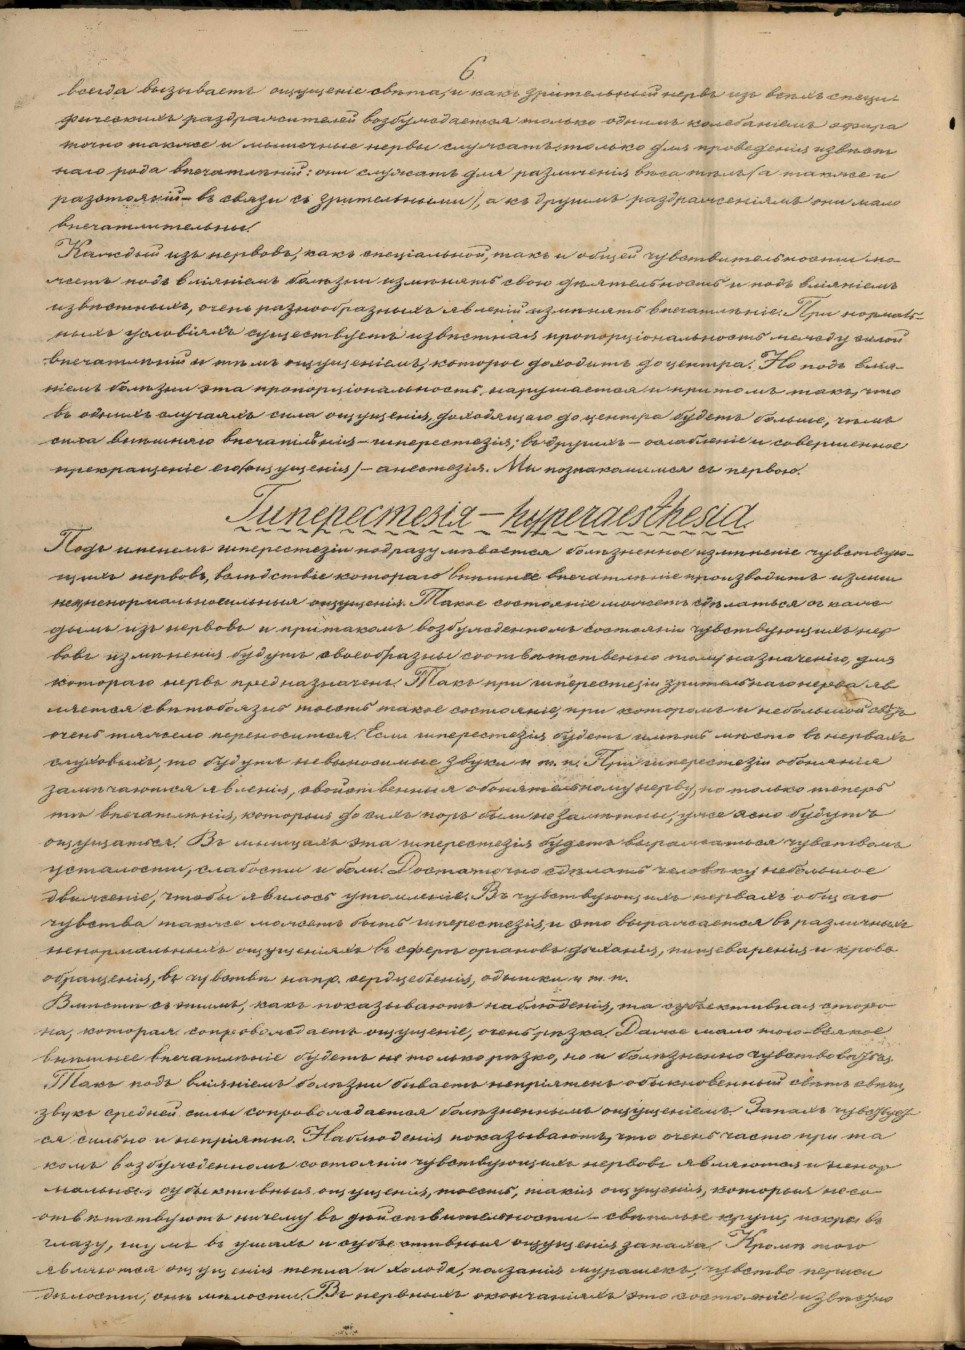 6
всегда вызываетъ ощущеніе свѣта, и какъ зрительный нервъ изъ всѣхъ специ-
фическихъ раздражителей возбуждается только однимъ колебаніемъ эфира
точно также и мышечные нервы служатъ только для проведенія извѣст
наго рода впечатлѣній: они служатъ для различенія вѣса тѣлъ (а также и
разстояній – въ связи съ зрительными), а къ другимъ раздраженіямъ они мало
впечатлительны.
Каждый изъ нервовъ, какъ спеціальной, такъ и общей чувствительности мо-
жетъ подъ вліяніемъ болѣзни измѣнять свою дѣятельность и подъ вліяніемъ
извѣстныхъ, очень разнообразныхъ явленій измѣнять впечатлѣніе. При нормаль-
ныхъ условіяхъ существуетъ извѣстная пропорціональность между силой
впечатлѣній и тѣмъ ощущеніемъ, которое доходитъ до центра. Но подъ влія-
ніемъ болѣзни эта пропорціональность нарушается и притомъ такъ, что
въ однихъ случаяхъ сила ощущенія, доходящаго до центра будетъ больше, чѣмъ
сила внѣшняго впечатлѣнія – гиперестезія; въ другихъ – ослабленіе и совершенное
прекращеніе его (ощущенія) – анестезія. Мы познакомимся съ первою.
Гиперестезія – hyperaesthesia.
Подъ именемъ гиперестезіи подразумѣвается болѣзненное измѣненіе чувствую-
щихъ нервовъ, вслѣдствіе котораго внѣшнее впечатлѣніе производитъ
ненормальносильныя ощущенія. Такое состояніе можетъ сдѣлаться съ каж
дымъ изъ нервовъ и при такомъ возбужденномъ состояніи чувствующихъ нер
вовъ измѣненія будутъ своеобразны соотвѣтственно тому назначенію, для
котораго нервъ предназначенъ. Такъ при гиперестезіи зрительнаго нерва яв
ляется свѣтобоязнь тоесть такое состояніе, при которомъ и небольшой свѣтъ
очень тяжело переносится. Если гиперестезія будетъ имѣть мѣсто въ нервахъ
слуховыхъ, то будутъ невыносимые звуки и т. п. При гиперестезіи обонянія
замѣчаются явленія, свойственныя обонятельному нерву, но только теперь
тѣ впечатлѣнія, которыя до сихъ поръ были незамѣтны, уже ясно будутъ
ощущаться. Въ мышцахъ эта гиперестезія будетъ выражаться чувствомъ
усталости, слабости и боли. Достаточно сдѣлать человѣку небольшое
движеніе, чтобы явилось утомленіе. Въ чувствующихъ нервахъ общаго
чувства также можетъ быть гиперестезія, и это выражается въ различныхъ
ненормальныхъ ощущеніяхъ въ сферѣ органовъ дыханія, пищеваренія и крово
обращенія, въ чувствѣ напр. сердцебіенія, одышки и т. п.
Вмѣстѣ съ тѣмъ, какъ показываютъ наблюденія, та субъективная сторо
на, которая сопровождаетъ ощущеніе, очень рѣзка. Даже мало того – всякое
внѣшнее впечатлѣніе будетъ не только рѣзко, но и болѣзненно
Такъ подъ вліяніемъ болѣзни бываетъ непріятенъ обыкновенный свѣтъ свѣчи,
звукъ средней силы сопровождается болѣзненнымъ ощущеніемъ. Запахъ чувствует
ся сильно и непріятно. Наблюденія показываютъ, что очень часто при та
комъ возбужденномъ состояніи чувствующихъ нервовъ являются и ненор
мальныя субъективныя ощущенія, тоесть, такія ощущенія, которыя несо-
отвѣтствуютъ ничему въ дѣйствительности – свѣтлые круги, искры въ
глазу, шумъ въ ушахъ и субъективныя ощущенія запаха. Кромѣ того
являются ощущенія тепла и холода, ползанія мурашекъ, чувство
Въ нервныхъ окончаніяхъ это состояніе